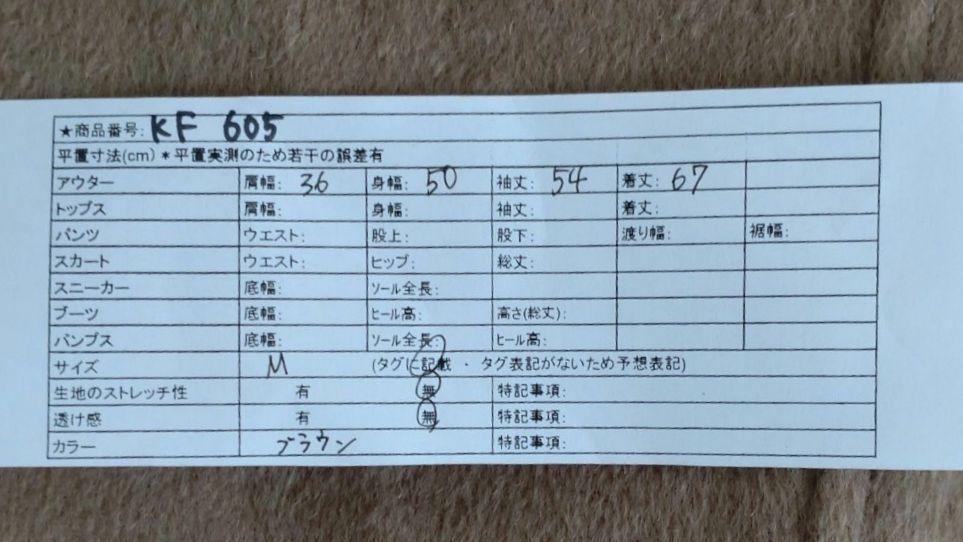 ★商品番号: KF 605
平置寸法(cm)*平置実測のため若干の誤差有
アウター 肩幅: 36 身幅: 50 袖丈: 54 着丈: 67
トップス 肩幅: 身幅: 袖丈: 着丈:
パンツ ウエスト: 股上: 股下: 渡り幅: 裾幅:
スカート ウエスト: ヒップ: 総丈:
スニーカー 底幅: ソール全長:
ブーツ 底幅: ヒール高: 高さ(総丈):
パンプス 底幅: ソール全長: ヒール高:
サイズ M (タグに記載 ・ タグ表記がないため予想表記)
生地のストレッチ性 有 無 特記事項:
透け感 有 無 特記事項:
カラー ブラウン 特記事項: